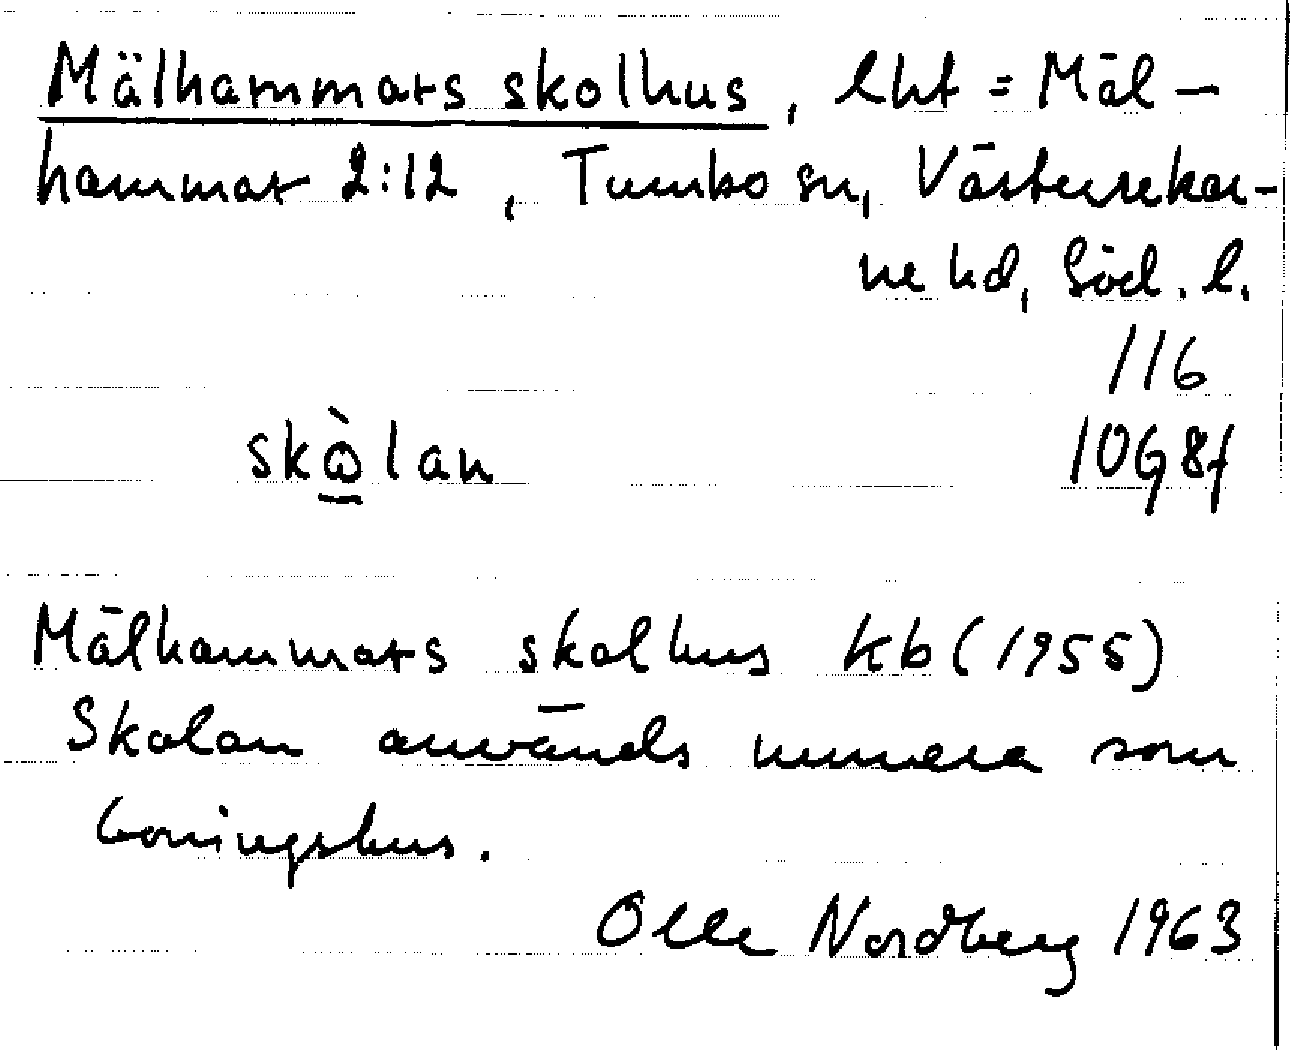 Mälhammars skolhus, lht = Mäl-
hammar 2:12, Tumbo sn, Västerrekar-
ne hd, Söd. l.
116
skὼlan 10G8f
Mälhammars skolhus kb (1955)
Skolan används numera som
boningshus.
Olle Nordberg 1963